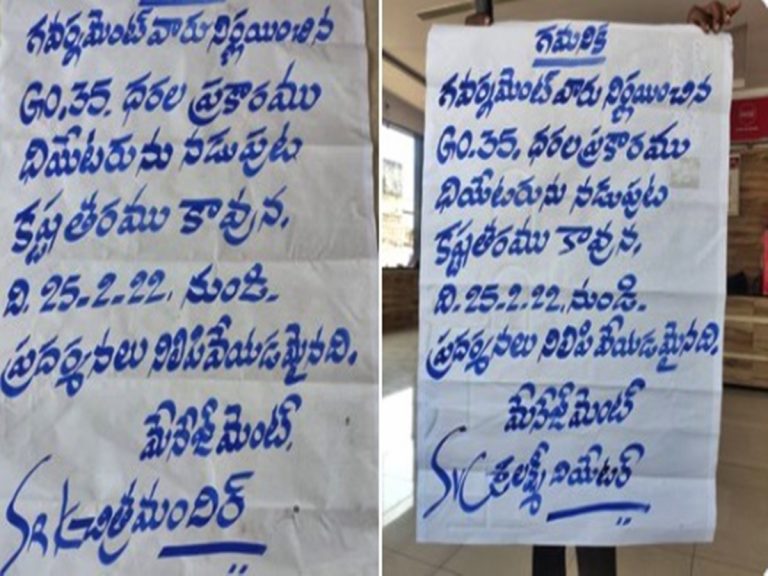 గవర్నమెంట్ వారు నిర్ణయించిన
GO.35. ధరల ప్రకారము
థియేటరును నడుపుట
కష్టతరము కావున.
ది. 25-2-22. నుండి-
ప్రదర్శనలు నిలిపివేయడమైనది.
మేనేజ్‌మెంట్.
చిత్రమందిర్
గమనిక
గవర్నమెంట్ వారు నిర్ణయించిన
GO.35. ధరల ప్రకారము
థియేటరును నడుపుట
కష్టతరము కావున.
ది. 25-2-22. నుండి-
ప్రదర్శనలు నిలిపివేయడమైనది.
మేనేజ్‌మెంట్
SVC శ్రీలక్ష్మీ థియేటర్